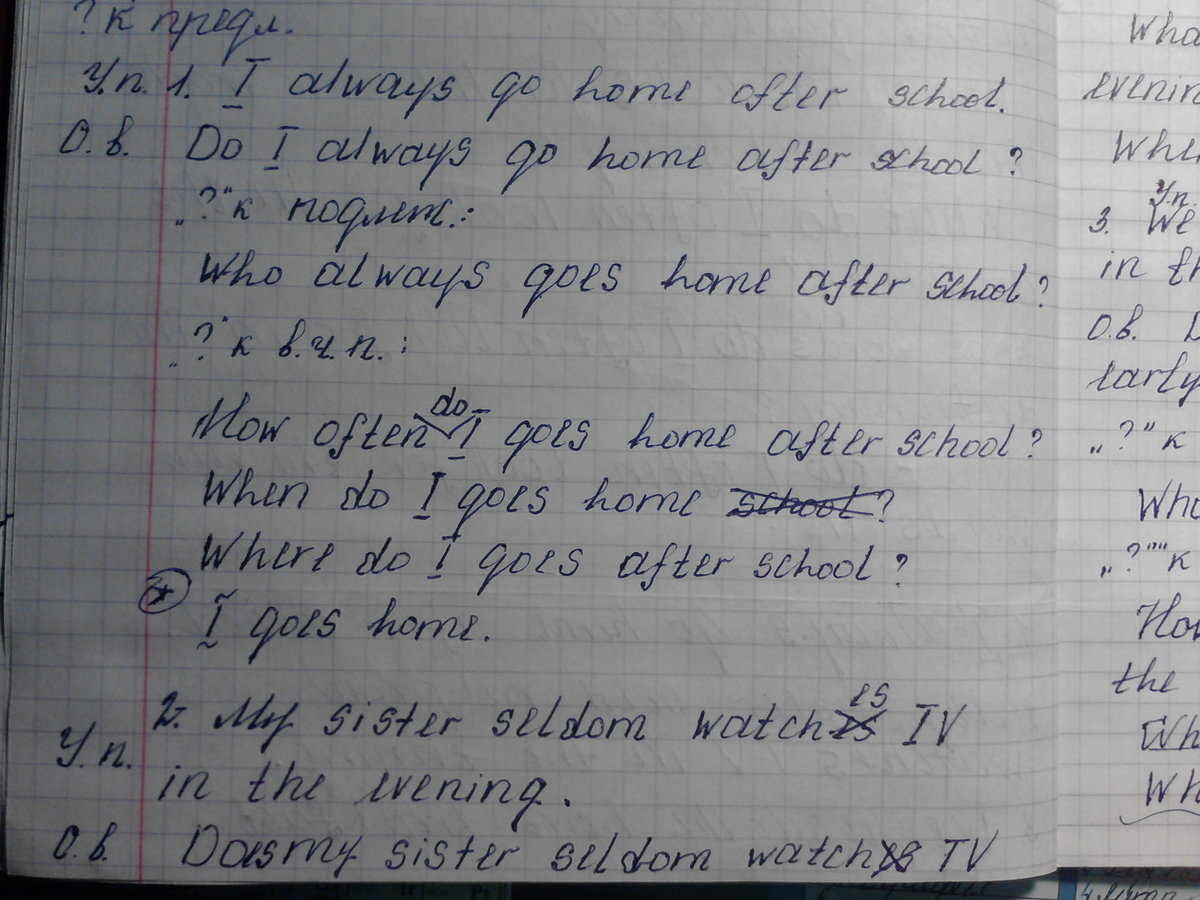 ? к предл.
У.п. 1. I always go home after school.
О.в. Do I always go home after school ?
„?“ к подлеж.:
Who always goes home after school?
„?“ к в.ч.п. :
do
How often I goes home after school?
When do I goes home school?
Where do I goes after school?
I goes home.
es
2. My sister seldom watch TV
У.п.
in the evening.
О.в. Does my sister seldom watch TV
Wha
evenin
Whe
У.п.
3. We
in th
О.в. D
early
„?“ к
Who
„?“ к
How
the
Wh
Wh